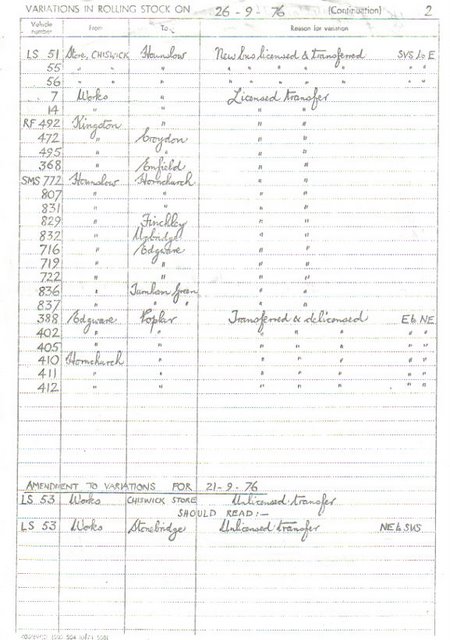 VARIATIONS IN ROLLING STOCK ON 26-9-76 (Continuation) 2
Vehicle number From To Reason for variation
LS 51 Store, CHISWICK Hounslow New bus licensed & transferred SVS to E
55 " " " " " " " " " "
56 " " " " " " " " " "
7 Works " Licensed transfer
14 " " " "
RF 492 Kingston " " "
472 " Croydon " "
495 " " " "
368 " Enfield " "
SMS 772 Hounslow Hornchurch " "
807 " " " "
831 " " " "
829 " Finchley " "
832 " Uxbridge " "
716 " Edgware " "
719 " " " "
722 " " " "
836 " Turnham Green " "
837 " " " " "
388 Edgware Poplar Transferred & delicensed E to NE
402 " " " " " " "
405 " " " " " " "
410 Hornchurch " " " " " "
411 " " " " " " "
412 " " " " " " "
AMENDMENT TO VARIATIONS FOR 21-9-76
LS 53 Works CHISWICK STORE Unlicensed transfer
SHOULD READ:-
LS 53 Works Stonebridge Unlicensed transfer NE to SVS